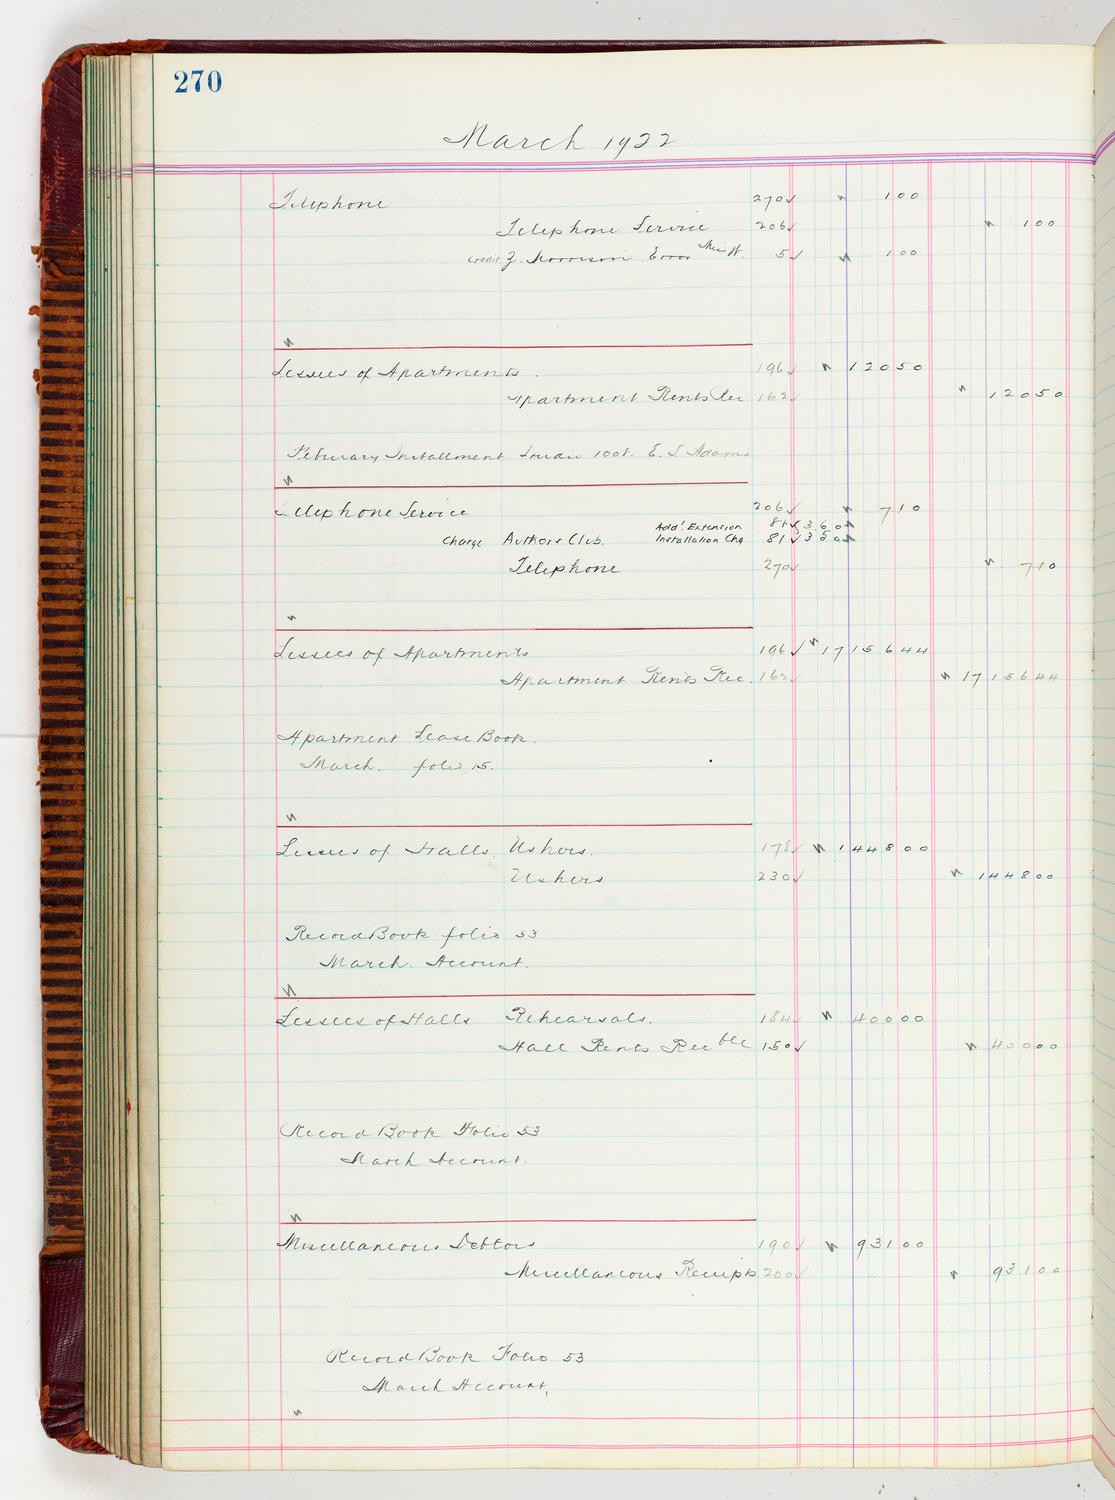 270
March 1922
Telephone 270✓ 1 00
Telephone Service 206✓ 1 00
Credit J. Morrison Error 5✓ 1 00
Lessees of Apartments. 196✓ 120 50
Apartment Rents Rec 162✓ 120 50
February Installment Studio 1008. E. S. Adams
Telephone Service 206✓ 7 10
Add'l. Extension 81✓ 3 60
Charge Authors Club. Installation Chg 81✓ 3 50
Telephone 270✓ 7 10
Lessees of Apartments 196✓ 17156 44
Apartment Rents Rec. 162✓ 17156 44
Apartment Lease Book.
March. folio 15.
Lessees of Halls. Ushers. 178✓ 1448 00
Ushers 230✓ 1448 00
Record Book folio 53
March. Account.
Lessees of Halls Rehearsals. 184✓ 400 00
Hall Rents Rec'ble 150✓ 400 00
Record Book Folio 53
March Account.
Miscellaneous Debtors 190✓ 931 00
Miscellaneous Receipts 200✓ 931 00
Record Book Folio 53
March Account,